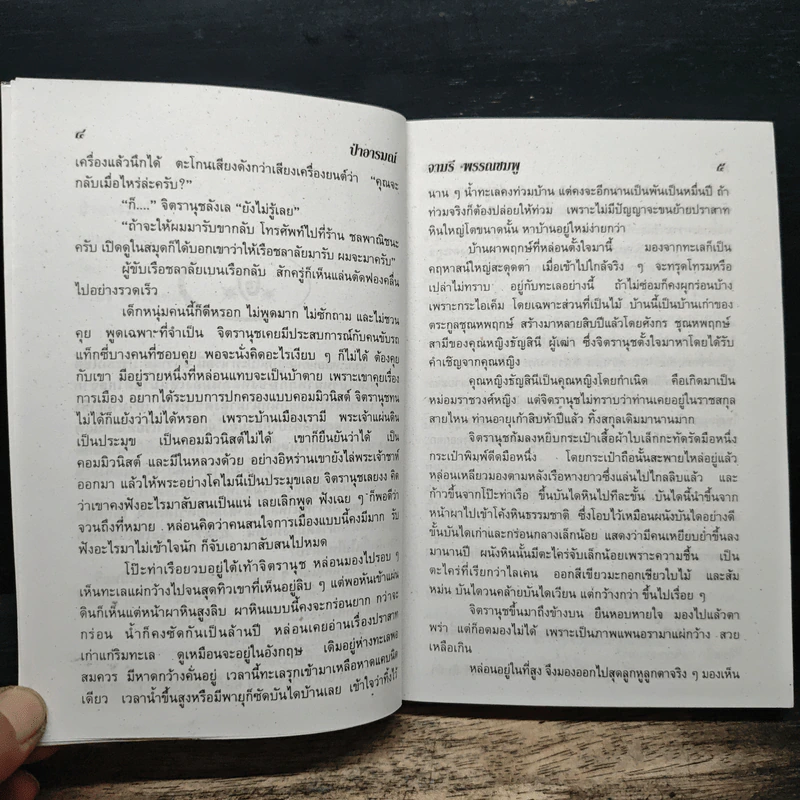 ๔
ป่าอารมณ์
เครื่องแล้วนึกได้ ตะโกนเสียงดังกว่าเสียงเครื่องยนต์ว่า "คุณจะ
กลับเมื่อไหร่ล่ะครับ?"
"ก็...." จิตรานุชลังเล "ยังไม่รู้เลย"
"ถ้าจะให้ผมมารับขากลับ โทรศัพท์ไปที่ร้าน ชลพาณิชนะ
ครับ เปิดดูในสมุดก็ได้บอกเขาว่าให้เรือชลาลัยมารับ ผมจะมาครับ"
ผู้ขับเรือชลาลัยเบนเรือกลับ สักครู่ก็เห็นแล่นตัดฟองคลื่น
ไปอย่างรวดเร็ว
เด็กหนุ่มคนนี้ก็ดีหรอก ไม่พูดมาก ไม่ซักถาม และไม่ชวน
คุย พูดเฉพาะที่จำเป็น จิตรานุชเคยมีประสบการณ์กับคนขับรถ
แท็กซี่บางคนที่ชอบคุย พอจะนั่งคิดอะไรเงียบ ๆ ก็ไม่ได้ ต้องคุย
กับเขา มีอยู่รายหนึ่งที่หล่อนแทบจะเป็นบ้าตาย เพราะเขาคุยเรื่อง
การเมือง อยากได้ระบบการปกครองแบบคอมมิวนิสต์ จิตรานุชทน
ไม่ได้ก็แย้งว่าไม่ได้หรอก เพราะบ้านเมืองเรามี พระเจ้าแผ่นดิน
เป็นประมุข เป็นคอมมิวนิสต์ไม่ได้ เขาก็ยืนยันว่าได้ เป็น
คอมมิวนิสต์ และมีในหลวงด้วย อย่างอิหร่านเขายังไล่พระเจ้าชาห์
ออกมา แล้วให้พระอย่างโคไมนีเป็นประมุขเลย จิตรานุชเลยงง คิด
ว่าเขาคงฟังอะไรมาสับสนเป็นแน่ เลยเลิกพูด ฟังเฉย ๆ ก็พอดีว่า
จวนถึงที่หมาย หล่อนคิดว่าคนสนใจการเมืองแบบนี้คงมีมาก รับ
ฟังอะไรมาไม่เข้าใจนัก ก็จับเอามาสับสนไปหมด
โป๊ะท่าเรือยวบอยู่ใต้เท้าจิตรานุช หล่อนมองไปรอบ ๆ
เห็นทะเลแผ่กว้างไปจนสุดทิวเขาที่เห็นอยู่ลิบ ๆ แต่พอหันเข้าแผ่น
ดินก็เห็นแต่หน้าผาหินสูงลิบ ผาหินแบบนี้คงจะกร่อนยาก กว่าจะ
กร่อน น้ำก็คงซัดกันเป็นล้านปี หล่อนเคยอ่านเรื่องปราสาท
เก่าแก่ริมทะเล ดูเหมือนจะอยู่ในอังกฤษ เดิมอยู่ห่างทะเลพอ
สมควร มีหาดกว้างคั่นอยู่ เวลานี้ทะเลรุกเข้ามาเหลือหาดแคบนิด
เดียว เวลาน้ำขึ้นสูงหรือมีพายุก็ซัดบันไดบ้านเลย เข้าใจว่าทิ้งไว้
จามรี พรรณชมพู
๕
นาน ๆ น้ำทะเลคงท่วมบ้าน แต่คงจะอีกนานเป็นพันเป็นหมื่นปี ถ้า
ท่วมจริงก็ต้องปล่อยให้ท่วม เพราะไม่มีปัญญาจะขนย้ายปราสาท
หินใหญ่โตขนาดนั้น หาบ้านอยู่ใหม่ง่ายกว่า
บ้านผาพฤกษ์ที่หล่อนตั้งใจมานี้ มองจากทะเลก็เป็น
คฤหาสน์ใหญ่สะดุดตา เมื่อเข้าไปใกล้จริง ๆ จะทรุดโทรมหรือ
เปล่าไม่ทราบ อยู่กับทะเลอย่างนี้ ถ้าไม่ซ่อมก็คงผุกร่อนบ้าง
เพราะกระไอเค็ม โดยเฉพาะส่วนที่เป็นไม้ บ้านนี้เป็นบ้านเก่าของ
ตระกูลชุณหพฤกษ์ สร้างมาหลายสิบปีแล้วโดยศังกร ชุณหพฤกษ์
สามีของคุณหญิงธัญสินี ผู้เฒ่า ซึ่งจิตรานุชตั้งใจมาหาโดยได้รับ
คำเชิญจากคุณหญิง
คุณหญิงธัญสินีเป็นคุณหญิงโดยกำเนิด คือเกิดมาเป็น
หม่อมราชวงศ์หญิง แต่จิตรานุชไม่ทราบว่าท่านเคยอยู่ในราชสกุล
สายไหน ท่านอายุเก้าสิบห้าปีแล้ว ทิ้งสกุลเดิมมานานมาก
จิตรานุชก้มลงหยิบกระเป๋าเสื้อผ้าใบเล็กกะทัดรัดมือหนึ่ง
กระเป๋าพิมพ์ดีดมือหนึ่ง โดยกระเป๋าถือนั้นสะพายไหล่อยู่แล้ว
หล่อนเหลียวมองตามหลังเรือหางยาวซึ่งแล่นไปไกลลิบแล้ว และ
ก้าวขึ้นจากโป๊ะท่าเรือ ขึ้นบันไดหินไปทีละขั้น บันไดนี้นำขึ้นจาก
หน้าผาไปเข้าโค้งหินธรรมชาติ ซึ่งโอบไว้เหมือนผนังบันไดอย่างดี
ขั้นบันไดเก่าและกร่อนกลางเล็กน้อย แสดงว่ามีคนเหยียบย่ำขึ้นลง
มานานปี ผนังหินนั้นมีตะไคร่จับเล็กน้อยเพราะความชื้น เป็น
ตะไคร่ที่เรียกว่าไลเคน ออกสีเขียวมะกอกเขียวใบไม้ และส้ม
หม่น บันไดวนคล้ายบันไดเวียน แต่กว้างกว่า ขึ้นไปเรื่อย ๆ
จิตรานุชขึ้นมาถึงข้างบน ยืนหอบหายใจ มองไปแล้วตา
พร่า แต่ก็อดมองไม่ได้ เพราะเป็นภาพแพนอรามาแผ่กว้าง สวย
เหลือเกิน
หล่อนอยู่ในที่สูง จึงมองออกไปสุดลูกหูลูกตาจริง ๆ มองเห็น